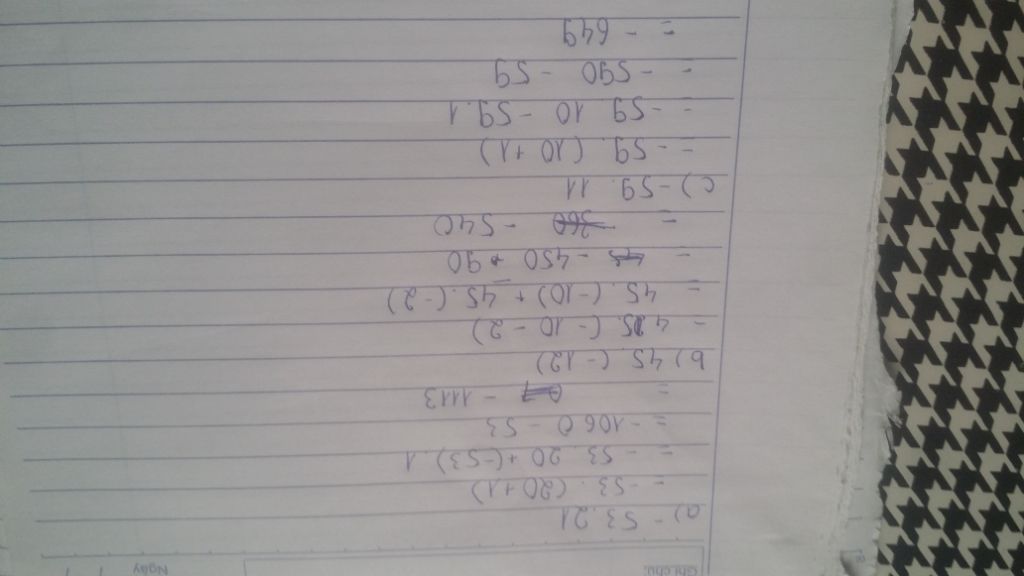 Ghi chú:
Ngày / /
a) - 53.21
= -53. (20+1)
= - 53. 20 + (-53). 1
= -1060 - 53
= - 1113
b) 45 (-12)
= 45. (-10 - 2)
= 45. (-10) + 45. (-2)
= -450 - 90
= - 540
c) - 59. 11
= -59. (10 +1)
= -59 10 - 59.1
= -590 - 59
= - 649